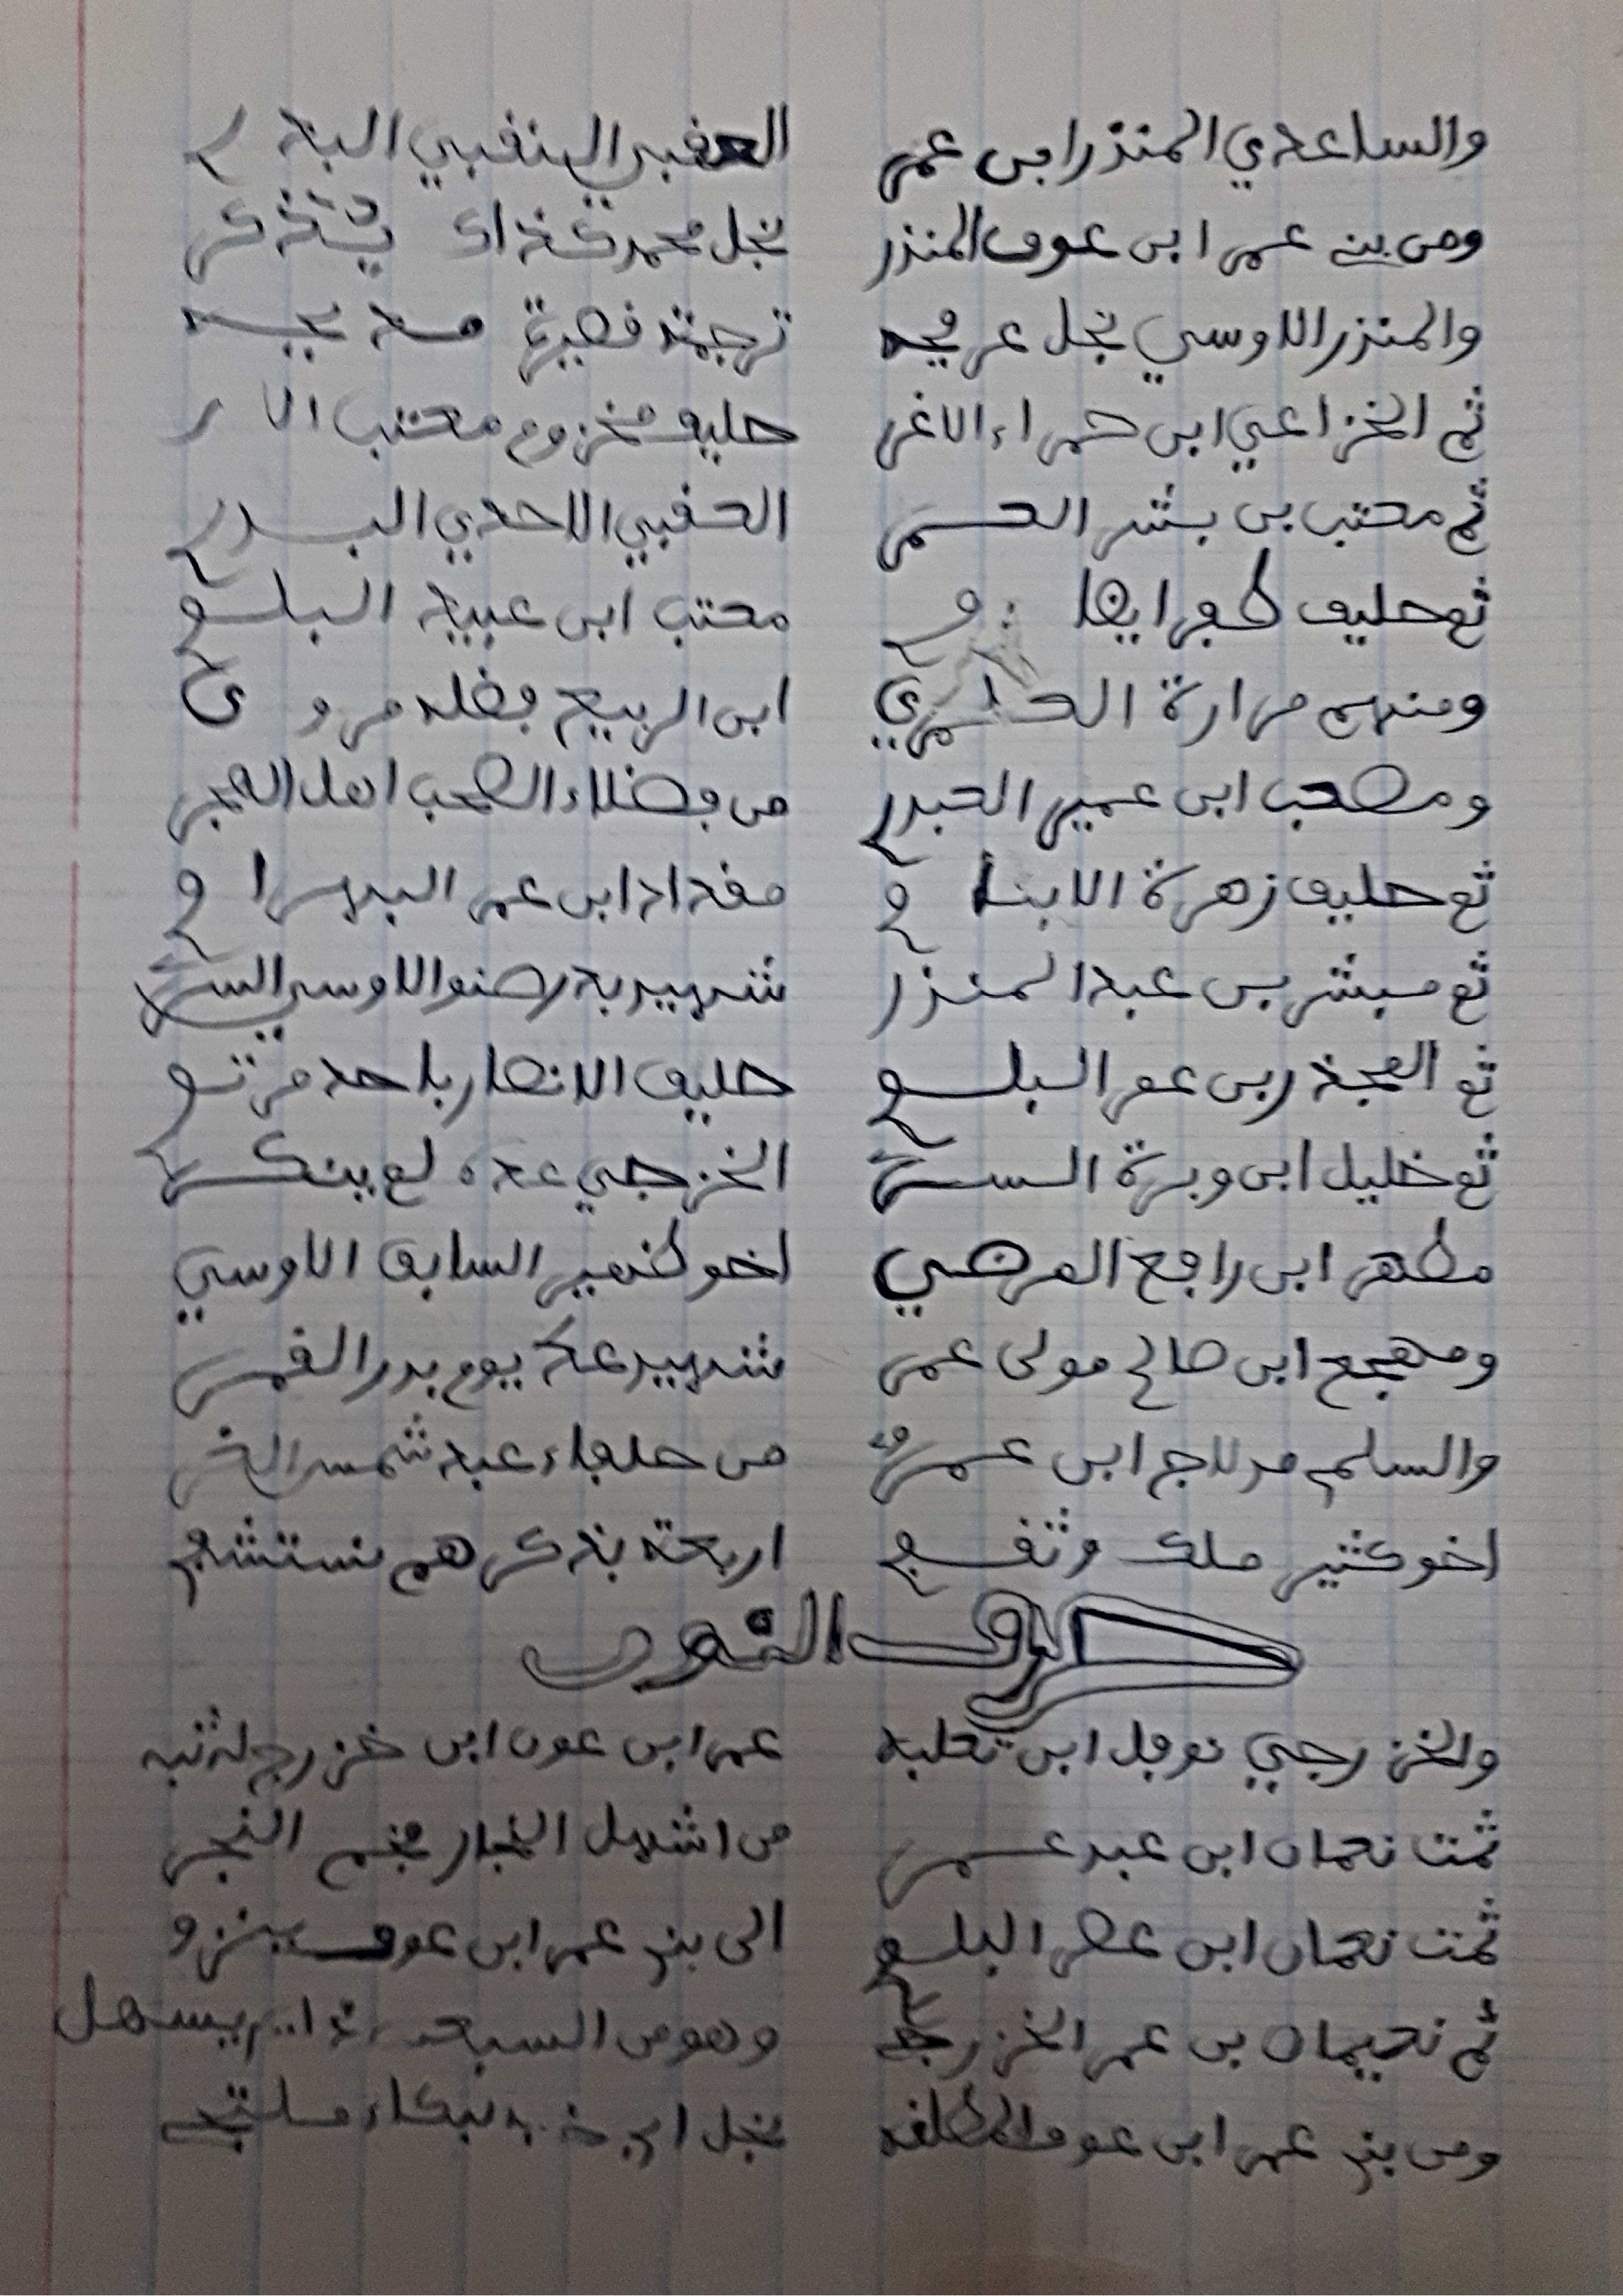 والساعدي المنذر ابن عمر العقبي النقبي البد
ومن بني عمر ابن عوف المنذر نجل محمد كذاك يذكر
والمنذر الاوسي نجل عرفجه ترجمته قصيرة
ثم الخزاعي ابن حمراء الاغر حليف مخزوم معتب الا ر
ثم معتب بن بشر العسر العقبي الاحدي البدر
ثم حليف ظفر ايضا معتب ابن عبيد البلو
ومنهم مرارة العمري ابن الربيع فضله مرو ي
ومصعب ابن عمير العبدر من فضلاء الصحب اهل الهجر
ثم حليف زهرة الابنا و مقداد ابن عمر البهرا و
ثم مبشر بن عبد المنذر شهيد بدر صنو الاوسي السر
ثم المجذر بن عمر البلو حليف الانصار باحد مرتو
ثم خليل ابن وبرة السر الخزرجي عده لم ينكر
مظهر ابن رافع المرضي اخو ظهير السابق الاوسي
ومهجع ابن صالح مولى عمر شهيد عك يوم بدر القمر
والسلم مدلاج ابن عمر من حلفاء عبد شمس الغر
اخو كثير ملك وثقف اربعة بذكرهم نستشف
حرف النون
والخزرجي نوفل ابن ثعلبه عمر ابن عون ابن خزرج له ثبه
ثمت نعمان ابن عبد عمر من اشهل النجار فخم النجر
ثمت نعمان ابن عصر البلو الى بني عمر ابن عوف ينزو
ثم نعيمان بن عمر الخزرج وهو من السبعـ
ومن بني عمر ابن عوف نجل